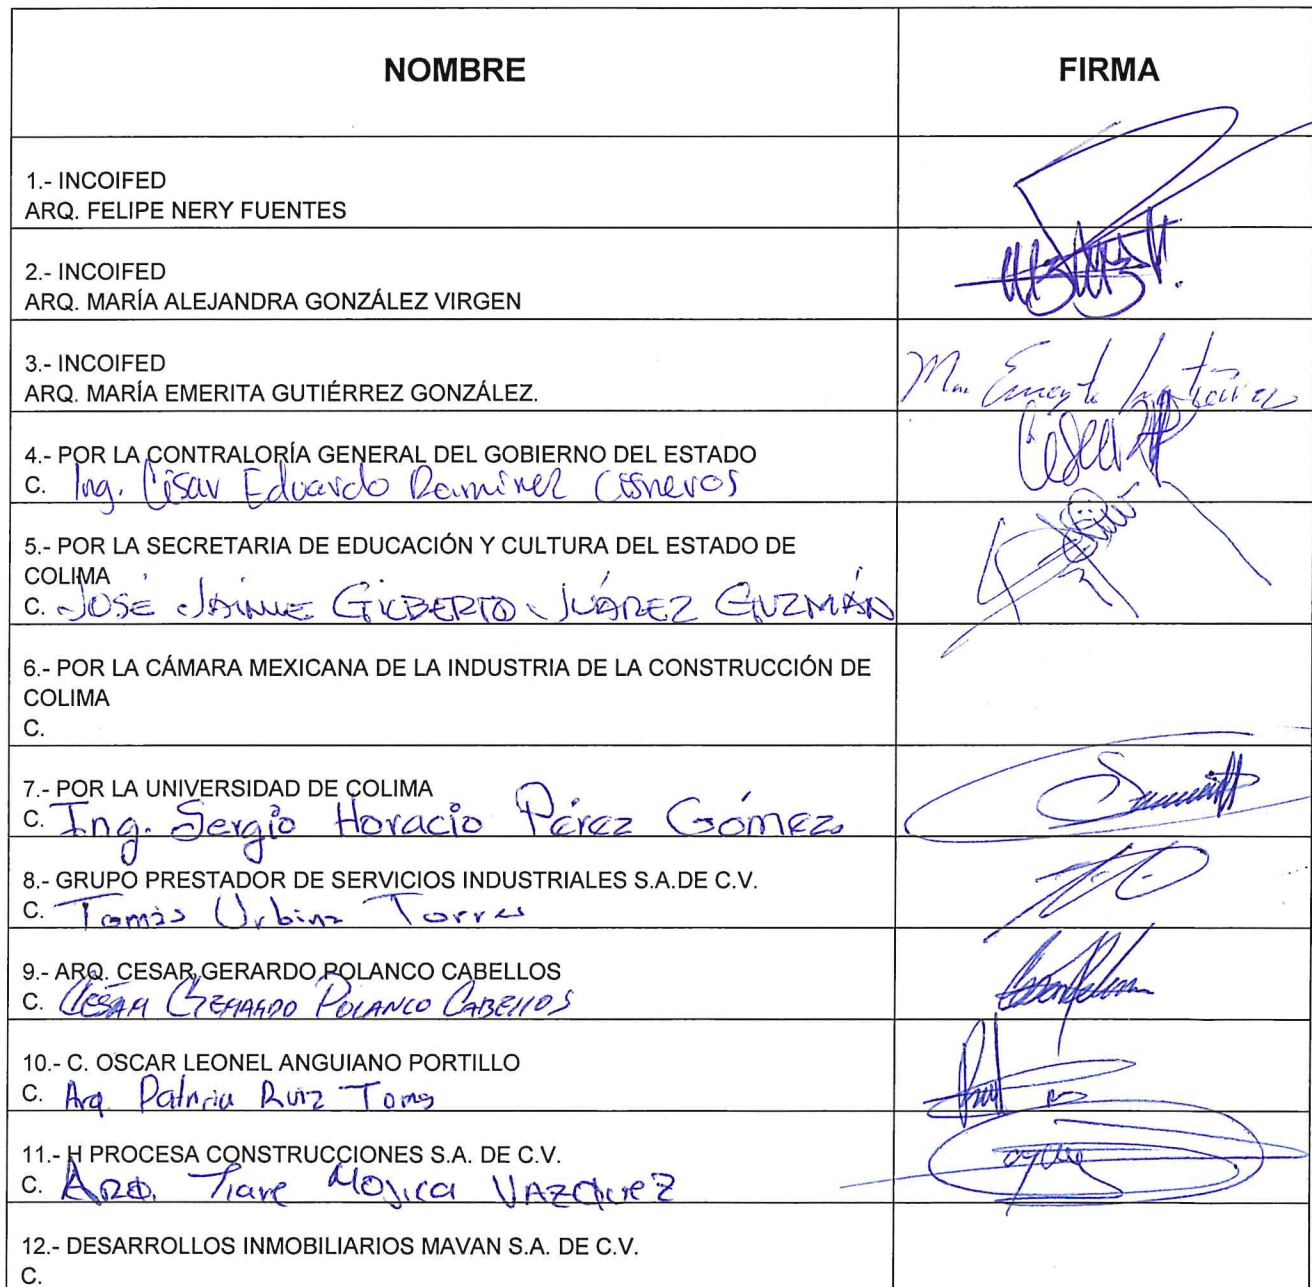 NOMBRE
FIRMA
1.- INCOIFED
ARQ. FELIPE NERY FUENTES
2.- INCOIFED
ARQ. MARÍA ALEJANDRA GONZÁLEZ VIRGEN
3.- INCOIFED
ARQ. MARÍA EMERITA GUTIÉRREZ GONZÁLEZ.
4.- POR LA CONTRALORÍA GENERAL DEL GOBIERNO DEL ESTADO
C. Ing. César Eduardo Ramírez Cisneros
5.- POR LA SECRETARIA DE EDUCACIÓN Y CULTURA DEL ESTADO DE
COLIMA
C. JOSÉ JAIME GILBERTO JUÁREZ GUZMÁN
6.- POR LA CÁMARA MEXICANA DE LA INDUSTRIA DE LA CONSTRUCCIÓN DE
COLIMA
C.
7.- POR LA UNIVERSIDAD DE COLIMA
C. Ing. Sergio Horacio Pérez Gómez.
8.- GRUPO PRESTADOR DE SERVICIOS INDUSTRIALES S.A.DE C.V.
C. Tomás Urbina Torres
9.- ARQ. CESAR GERARDO POLANCO CABELLOS
C. CESAR GERARDO POLANCO CABELLOS
10.- C. OSCAR LEONEL ANGUIANO PORTILLO
C. Arq. Patricia Ruiz Torres
11.- H PROCESA CONSTRUCCIONES S.A. DE C.V.
C. ARQ. Tiare Mojica VAZQUEZ
12.- DESARROLLOS INMOBILIARIOS MAVAN S.A. DE C.V.
C.